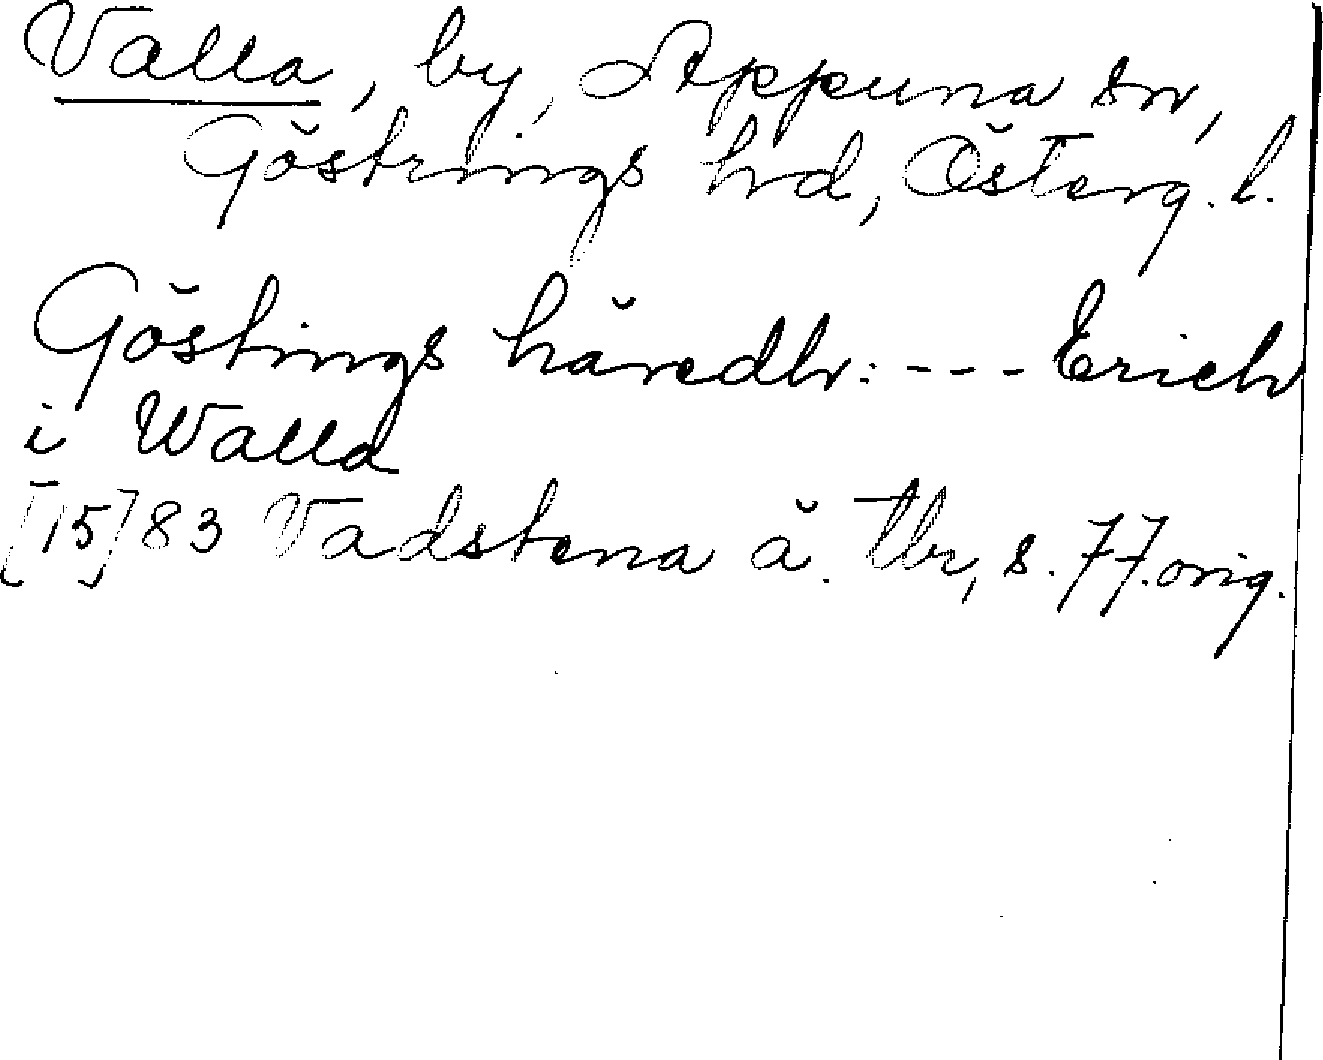 Valla, by, Appuna sn,
Göstrings hrd, Österg. l.
Göstings häredhr: --- Erich
i Walla
[15]83 Vadstena ä. tbr, s. 77. orig.